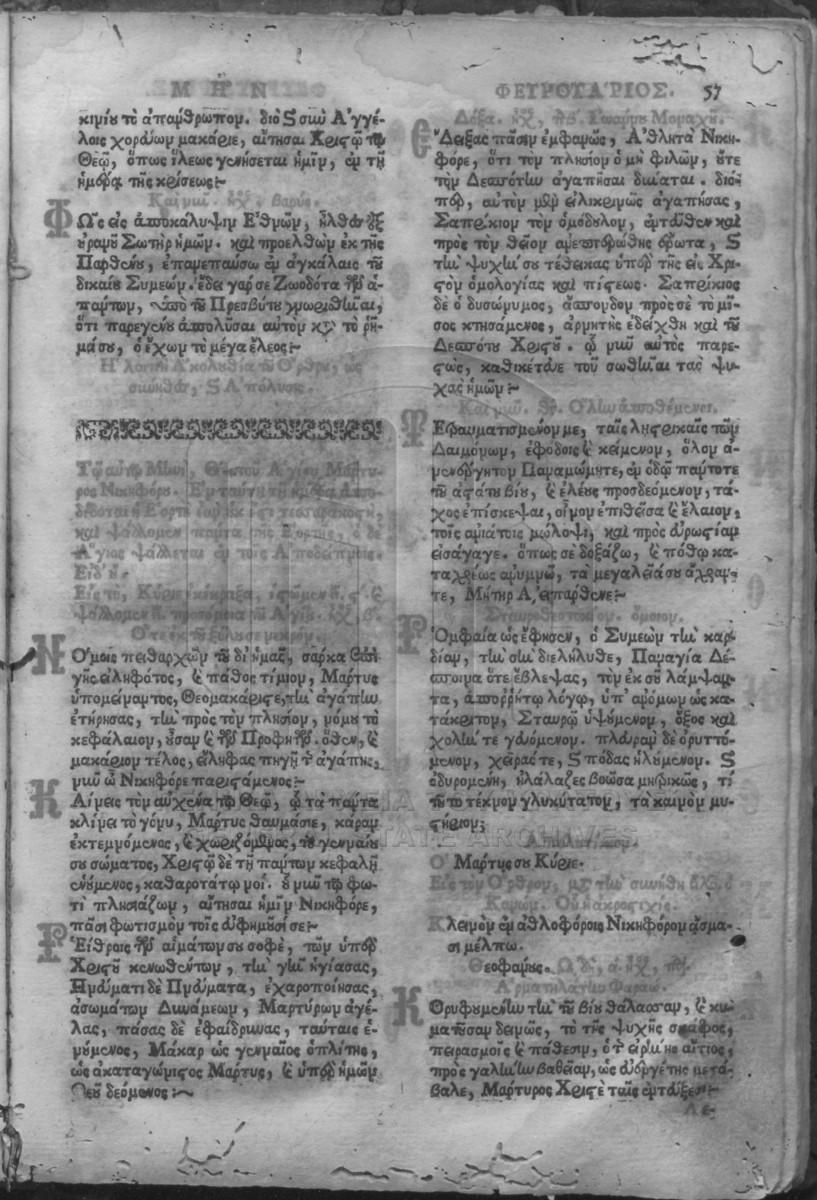 ΜΗΝ
ΦΕΥΡΟΥΑΡΙΟΣ. 57
κινίου τὸ ἀπάνθρωπον. διὸ ϗ σιωὺ Ἀγγέ-
λοις χορδύων μακάριε, αἴτησαι Χριστῷ τῷ
Θεῷ, ὅπως ἵλεως γενήσεται ἡμῖν, ἐν τῇ
ἡμέρᾳ τῆς κρίσεως:
Καὶ νιῦ. ἦχ. βαρύς.
Φῶς εἰς ἀποκάλυψιν Ἐθνῶν, ἦλθεν ἐξ
οὐρανοῦ Σωτὴρ ἡμῶν. καὶ προελθὼν ἐκ τῆς
Παρθένου, ἐπανεπαύσω ἐν ἀγκάλαις τοῦ
δικαίου Συμεών. ἔδει γάρ σε Ζωοδότα τῶν ἁ-
πάντων, ὑπὸ τοῦ Πρεσβύτου γνωρισθῆναι,
ὅτι παρεγένου ἀπολῦσαι αὐτὸν κατὰ τὸ ῥῆ-
μά σου, ὁ ἔχων τὸ μέγα ἔλεος:
Ἡ λοιπὴ Ἀκολουθία τοῦ Ὄρθρου, ὡς
σιωήθως, ϗ Ἀπόλυσις.
Τῷ αὐτῷ Μηνὶ, Θ΄. τοῦ Ἁγίου Μάρτυ-
ρος Νικηφόρου. Ἐν ταύτῃ τῇ ἡμέρᾳ ἀπο-
δίδοται ἡ Ἑορτὴ
καὶ ψάλλομεν πάντα τῆς Ἑορτῆς, ὁ δὲ
Ἅγιος ψάλλεται ἐν τοῖς Ἀποδείπνοις.
Εἰδ' οὔ.
Εἰς τὸ, Κύριε ἐκέκραξα, ἱστῶμεν ϛ. ς΄. ϗ
ψάλλομεν προσόμοια τοῦ Ἁγίου. ἦχ. β΄.
Ὅτε ἐκ τοῦ ξύλου σε νεκρόν.
Νόμοις πειθαρχῶν τοῦ δι' ἡμᾶς, σάρκα ἐκ
γῆς εἰληφότος, ϗ πάθος τίμιον, Μάρτυς
ὑπομείναντος, Θεομακάριστε, τιὼ ἀγάπιω
ἐτήρησας, τιὼ πρὸς τὸν πλησίον, νόμου τὸ
κεφάλαιον, οὖσαν ϗ τῶν Προφητῶν. ὅθεν, ϗ
μακάριον τέλος, εἴληφας πηγῇ τῆς ἀγάπης,
νιῦ ὦ Νικηφόρε παριστάμενος:
Κλίνεις τὸν αὐχένα τῷ Θεῷ, ᾧ τὰ πάντα
κλίνει τὸ γόνυ, Μάρτυς θαυμάσιε, κάραν
ἐκτεμνόμενος, ϗ χωριζόμενος, τοῦ γενναίου
σου σώματος, Χριστῷ δὲ τῇ πάντων κεφαλῇ
ἑνούμενος, καθαρωτάτῳ νοΐ. ᾧ νιῦ τῷ φω-
τὶ πλησιάζων, αἴτησαι ἡμῖν Νικηφόρε,
πᾶσι φωτισμὸν τοῖς εὐφημοῦσί σε:
Ῥείθροις τῶν αἱμάτων σου σοφὲ, τῶν ὑπὲρ
Χριστοῦ κενωθέντων, τιὼ γιῶ ἡγίασας,
Πνεύματι δὲ Πνεύματα, ἐχαροποίησας,
ἀσωμάτων Δυνάμεων, Μαρτύρων ἀγέ-
λας, πάσας δὲ ἐφαίδρυνας, ταύταις ἑ-
νούμενος, Μάκαρ ὡς γενναῖος ὁπλίτης,
ὡς ἀκαταγώνιστος Μάρτυς, ϗ ὑπὲρ ἡμῶν
Θεοῦ δεόμενος:
Δόξα. ἦχ. πλ. β. Ἰωάννου Μοναχοῦ.
Ἔδειξας πᾶσιν ἐμφανῶς, Ἀθλητὰ Νικη-
φόρε, ὅτι τὸν πλησίον ὁ μὴ φιλῶν, οὔτε
τὸν Δεσπότιω ἀγαπῆσαι δύναται. διό-
περ, αὐτὸν μὲν εἰλικρινῶς ἀγαπήσας,
Σαπρίκιον τὸν ὁμόδουλον, ἐντεῦθεν καὶ
πρὸς τὸν θεῖον ἀνεπτερώθης ἔρωτα, ϗ
τιὼ ψυχιώ σου τέθεικας ὑπὲρ τῆς εἰς Χρι-
στὸν ὁμολογίας καὶ πίστεως. Σαπρίκιος
δὲ ὁ δυσώνυμος, ἄσπονδον πρὸς σὲ τὸ μῖ-
σος κτησάμενος, ἀρνητὴς ἐδείχθη καὶ τοῦ
Δεσπότου Χριστοῦ. ᾧ νιῦ αὐτὸς παρε-
στὼς, καθικέτευε τοῦ σωθῆναι τὰς ψυ-
χὰς ἡμῶν:
Καὶ νιῦ. Θκ. Ὅλιω ἀποθέμενοι.
Τετραυματισμένον με, ταῖς λῃστρικαῖς τῶν
Δαιμόνων, ἐφόδοις ϗ κείμενον, ὅλον ἀ-
νενέργητον Παναμώμητε, ἐν ὁδῷ πάντοτε
τοῦ ἀστάτου βίου, ϗ ἐλέους προσδεόμενον, τά-
χος ἐπίσκεψαι, οἶνον ἐπιθεῖσα ϗ ἔλαιον,
τοῖς ἀνιάτοις μώλωψι, καὶ πρὸς εὐρωστίαν
εἰσάγαγε. ὅπως σε δοξάζω, ϗ πόθῳ κα-
ταχρέως ἀνυμνῶ, τὰ μεγαλεῖά σου ἄχραν-
τε, Μῆτηρ Ἀειπάρθενε:
Σταυροθεοτοκίον. ὅμοιον.
Ῥομφαία ὡς ἔφησεν, ὁ Συμεὼν τιὼ καρ-
δίαν, τιὼ σιὼ διελήλυθε, Παναγία Δέ-
σποινα ὅτε ἔβλεψας, τὸν ἐκ σοῦ λάμψαν-
τα, ἀπορρήτῳ λόγῳ, ὑπ' ἀνόμων ὡς κα-
τάκριτον, Σταυρῷ ὑψούμενον, ὄξος καὶ
χολιώ τε γευόμενον. πλευρὰν δὲ ὀρυττό-
μενον, χεῖράς τε, ϗ πόδας ἡλούμενον. ϗ
ὀδυρομένη, ἠλάλαζες βοῶσα μητρικῶς, τί
τοῦτο τέκνον γλυκύτατον, τὸ καινὸν μυ-
στήριον;
Ἀπολυτίκιον.
Ὁ Μάρτυς σου Κύριε.
Εἰς τὸν Ὄρθρον, μετὰ τιὼ σιωήθη
Κανών. Οὗ ἡ ἀκροστιχίς.
Κλεινὸν ἐν ἀθλοφόροις Νικηφόρον ᾄσμα-
σι μέλπω.
Θεοφάνους. ᾨδὴ, α. ἦχ. πλ.
Ἁρματηλάτιω Φαραώ.
Κορυφουμένιω τιὼ τοῦ βίου θάλασσαν, ϗ κυ-
ματοῦσαν δεινῶς, τὸ τῆς ψυχῆς σκάφος,
πειρασμοῖς ϗ πάθεσιν, ὁ τῆς εἰρήνης αἴτιος,
πρὸς γαλήνιω βαθεῖαν, ὡς εὐεργέτης μετά-
βαλε, Μάρτυρος Χριστὲ ταῖς ἐντεύξεσι:
Λε-
STATE ARCHIVES